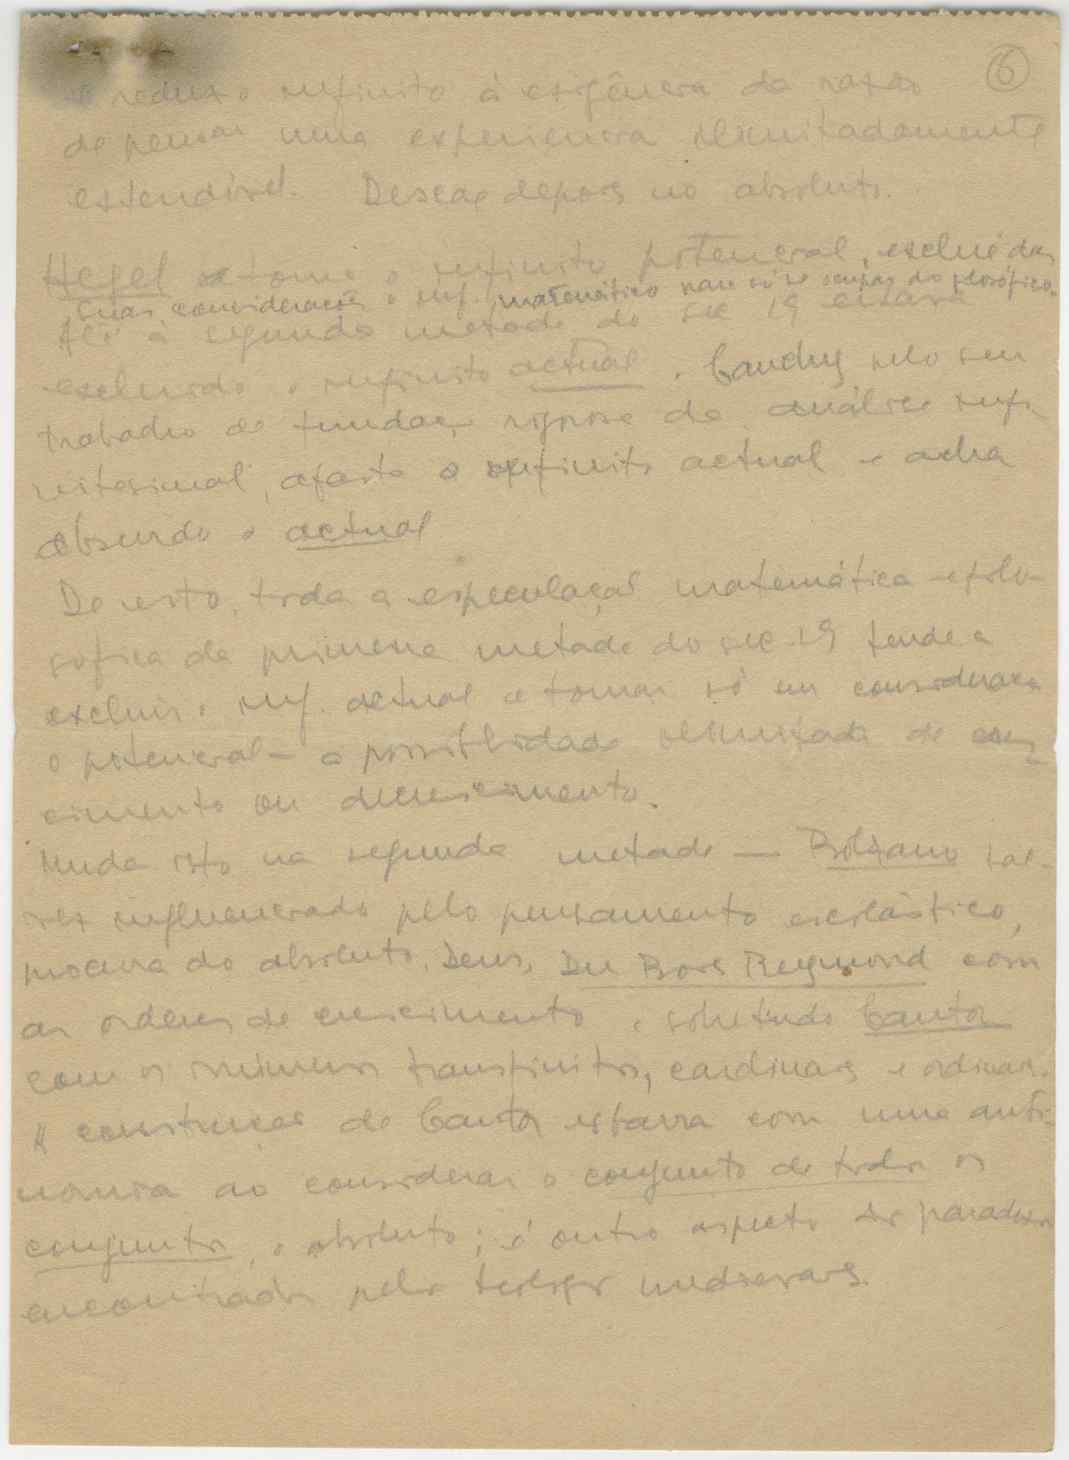 6
e reduz o infinito à exigência da razão
de pensar uma experiencia ilimitadamente
extendível. Descaç depois no absoluto.
Hegel retoma o infinito potencial, exclue das
suas considerações o inf. matemático para só se ocupar do filosófico.
Até à segunda metade do sec 19 estava
excluido o infinito actual. Cauchy pelo seu
trabalho de fundaç. rigorosa da análise infi-
nitesimal, afasta o infinito actual e acha
absurdo o actual
De resto, toda a especulação matemática e filo-
sofica da primeira metade do sec. 19 tende a
excluir o inf. actual e tomar só em consideraç.
o potencial – a possibilidade ilimitada de cres-
cimento ou decrescimento.
Muda isto na segunda metade — Bolzano tal-
vez influenciado pelo pensamento escolástico,
procura do absoluto, Deus, Du Bois Reymond com
as ordens de crescimento e sobretudo Cantor
com os números transfinitos, cardinais e ordinais.
A construção de Cantor esbarra com uma anti-
nomia ao considerar o conjunto de todos os
conjuntos, o absoluto; é outro aspecto dos paradoxos
encontrados pelos teologos medievais.